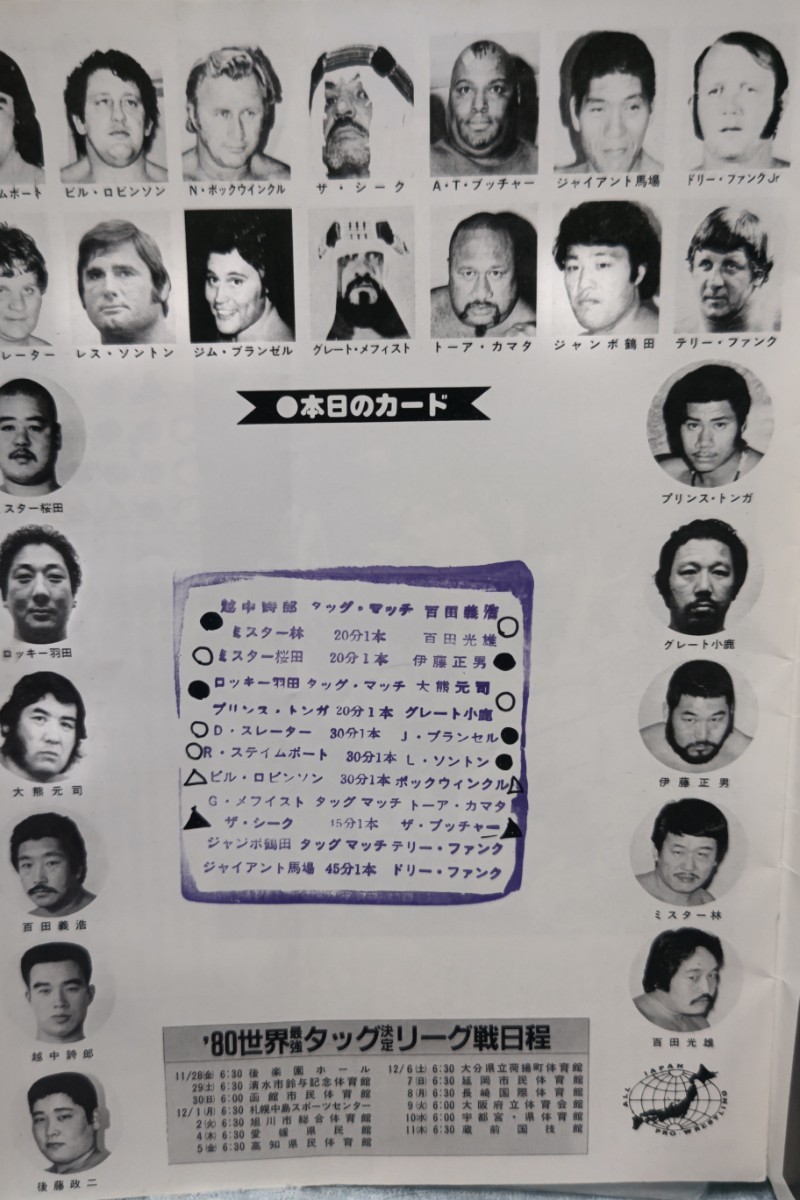 ムポート ビル・ロビンソン N・ボックウインクル ザ・シーク A・T・ブッチャー ジャイアント馬場 ドリー・ファンクJr
レーター レス・ソントン ジム・ブランゼル グレート・メフィスト トーア・カマタ ジャンボ鶴田 テリー・ファンク
●本日のカード
スター桜田
プリンス・トンガ
ロッキー羽田
グレート小鹿
大熊元司
伊藤正男
百田義浩
ミスター林
越中詩郎
百田光雄
後藤政二
越中詩郎 タッグ・マッチ 百田義浩
ミスター林 20分1本 百田光雄
ミスター桜田 20分1本 伊藤正男
ロッキー羽田 タッグ・マッチ 大熊元司
プリンス・トンガ 20分1本 グレート小鹿
D・スレーター 30分1本 J・ブランゼル
R・ステイムボート 30分1本 L・ソントン
ビル・ロビンソン 30分1本 ボックウィンクル
G・メフイスト タッグマッチ トーア・カマタ
ザ・シーク 45分1本 ザ・ブッチャー
ジャンボ鶴田 タッグマッチ テリー・ファンク
ジャイアント馬場 45分1本 ドリー・ファンク
'80世界最強タッグ決定リーグ戦日程
11/28㊎ 6:30 後楽園ホール
29㊏ 6:30 清水市鈴与記念体育館
30㊐ 6:00 函館市民体育館
12/1㊊ 6:30 札幌中島スポーツセンター
2㊋ 6:30 旭川市総合体育館
4㊍ 6:30 愛媛県民館
5㊎ 6:30 高知県民体育館
12/6㊏ 6:30 大分県立荷揚町体育館
7㊐ 6:30 延岡市民体育館
8㊊ 6:30 長崎国際体育館
9㊋ 6:00 大阪府立体育会館
10㊌ 6:00 宇都宮・県体育館
11㊍ 6:30 蔵前国技館
ALL JAPAN PRO-WRESTLING